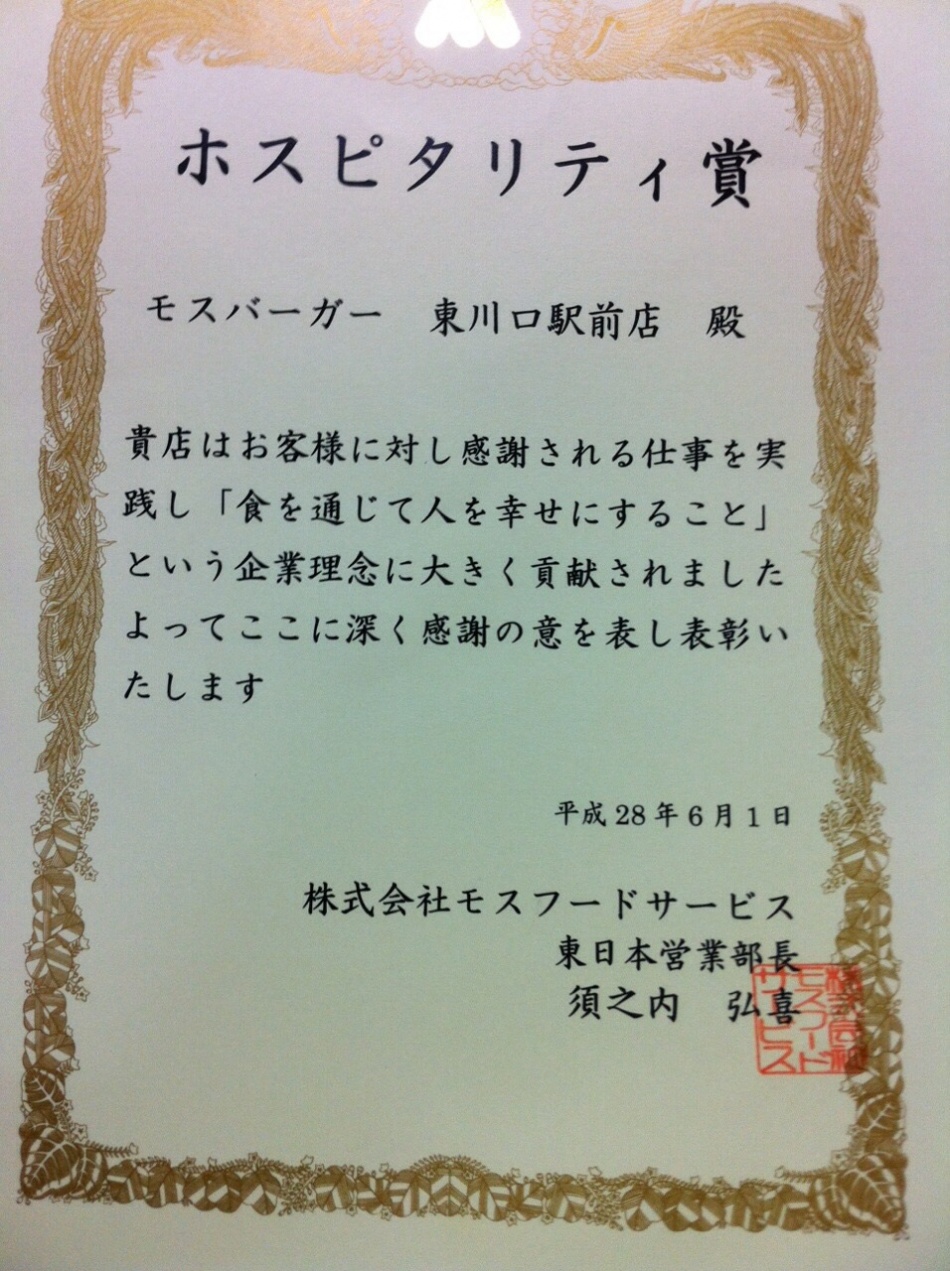 ホスピタリティ賞
モスバーガー　東川口駅前店　殿
貴店はお客様に対し感謝される仕事を実
践し「食を通じて人を幸せにすること」
という企業理念に大きく貢献されました
よってここに深く感謝の意を表し表彰い
たします
平成28年6月1日
株式会社モスフードサービス
東日本営業部長
須之内　弘喜
株式会社
モスフード
サービス